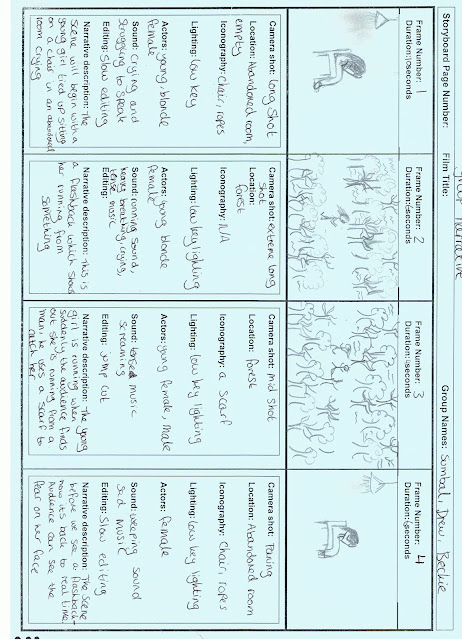 Storyboard Page Number:
Film Title:
Group Names: Sumbal, Drew, Beckie
Frame Number: 1
Duration: seconds
Camera shot: long shot
Location: Abandoned room,
empty
Iconography: chair, ropes
Lighting: low key
Actors: young blonde
female
Sound: Crying and
struggling to speak
Editing: Slow editing
Narrative description: The
scene will begin with a
young girl tied up sitting
on a chair in an abandoned
room crying
Frame Number: 2
Duration: seconds
Camera shot: extreme long
shot
Location: forest
Iconography: N/A
Lighting: low key lighting
Actors: young blonde
female
Sound: running sound,
heavy breathing, crying,
tense music
Editing:
Narrative description: This is
a flashback which shows
her running from
something
Frame Number: 3
Duration: seconds
Camera shot: mid shot
Location: forest
Iconography: a scarf
Lighting: low key lighting
Actors: young female, male
Sound: music
screaming
Editing: jump cut
Narrative description: The young
girl is running when
suddenly the audience finds
out she is running from a
man. he uses a scarf to
catch her
Frame Number: 4
Duration: seconds
Camera shot: Paning
Location: Abandoned room
Iconography: Chair, ropes
Lighting: low key lighting
Actors: female
Sound: weeping sound
sad music
Editing: Slow editing
Narrative description: The scene
before we see a flashback
now it's back to real time.
Audience can see the
fear on her face